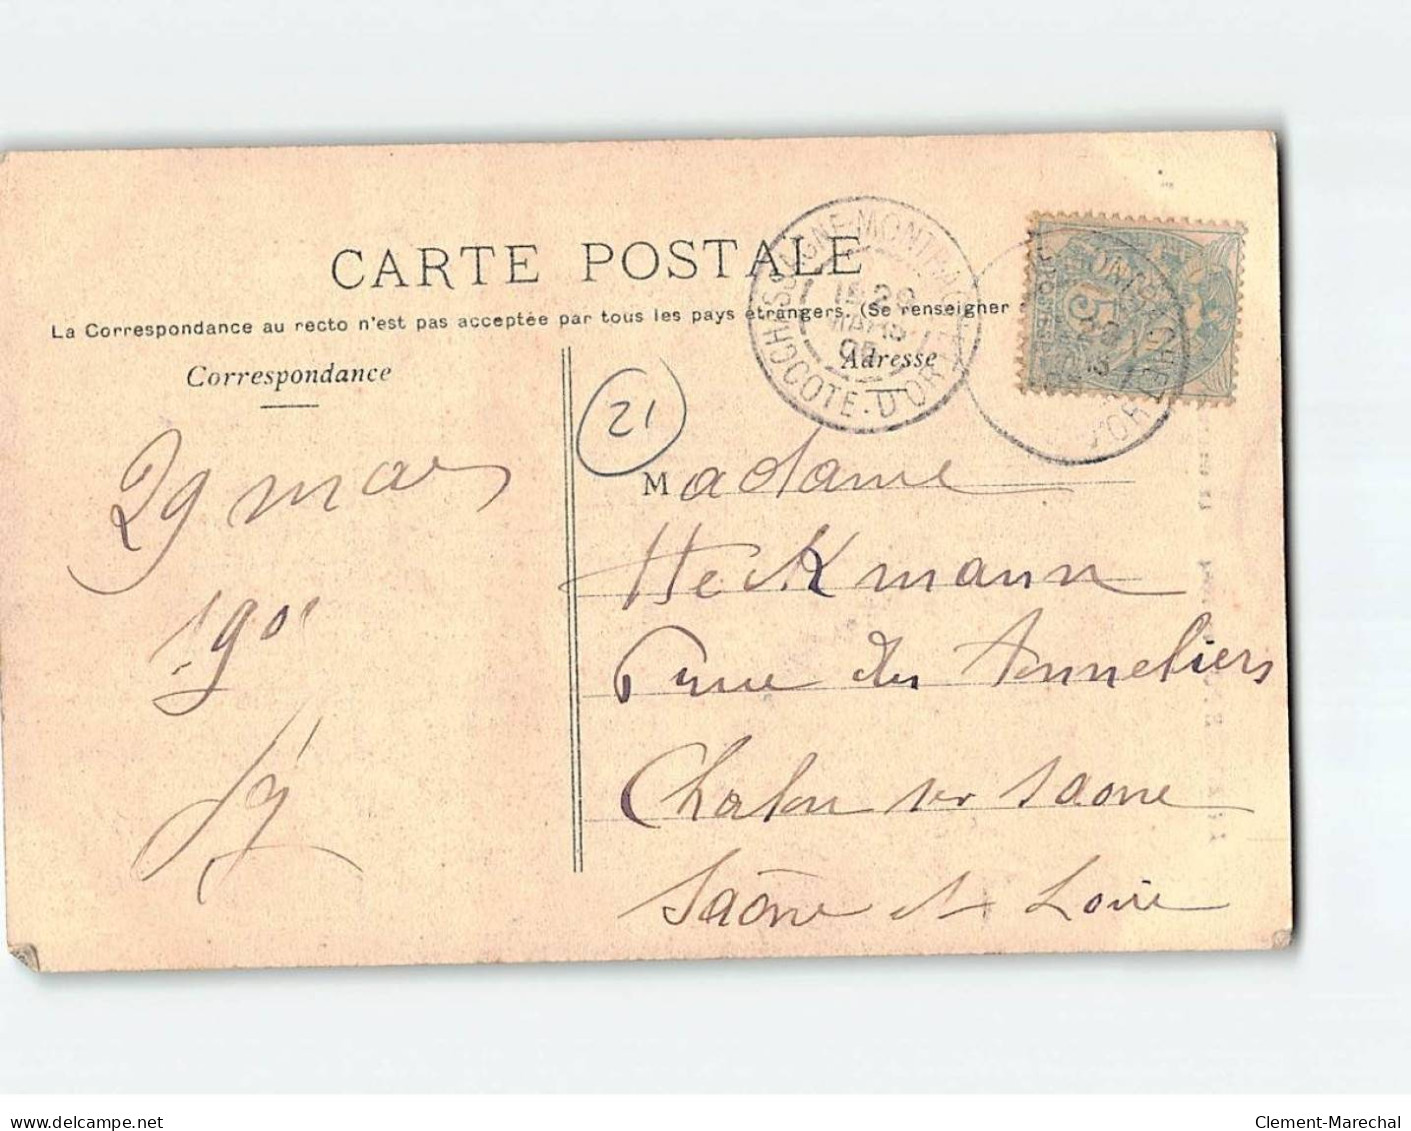 CARTE POSTALE
La Correspondance au recto n'est pas acceptée par tous les pays étrangers. (Se renseigner
Correspondance
Adresse
CHASSAGNE-MONTRACHET
29
MARS
05
COTE-D'OR
POSTES
5
21
29 mars
190
Madame
Heckmann
rue des Tonneliers
Chalon sur Saone
Saône et Loire
www.delcampe.net
Clement-Marechal